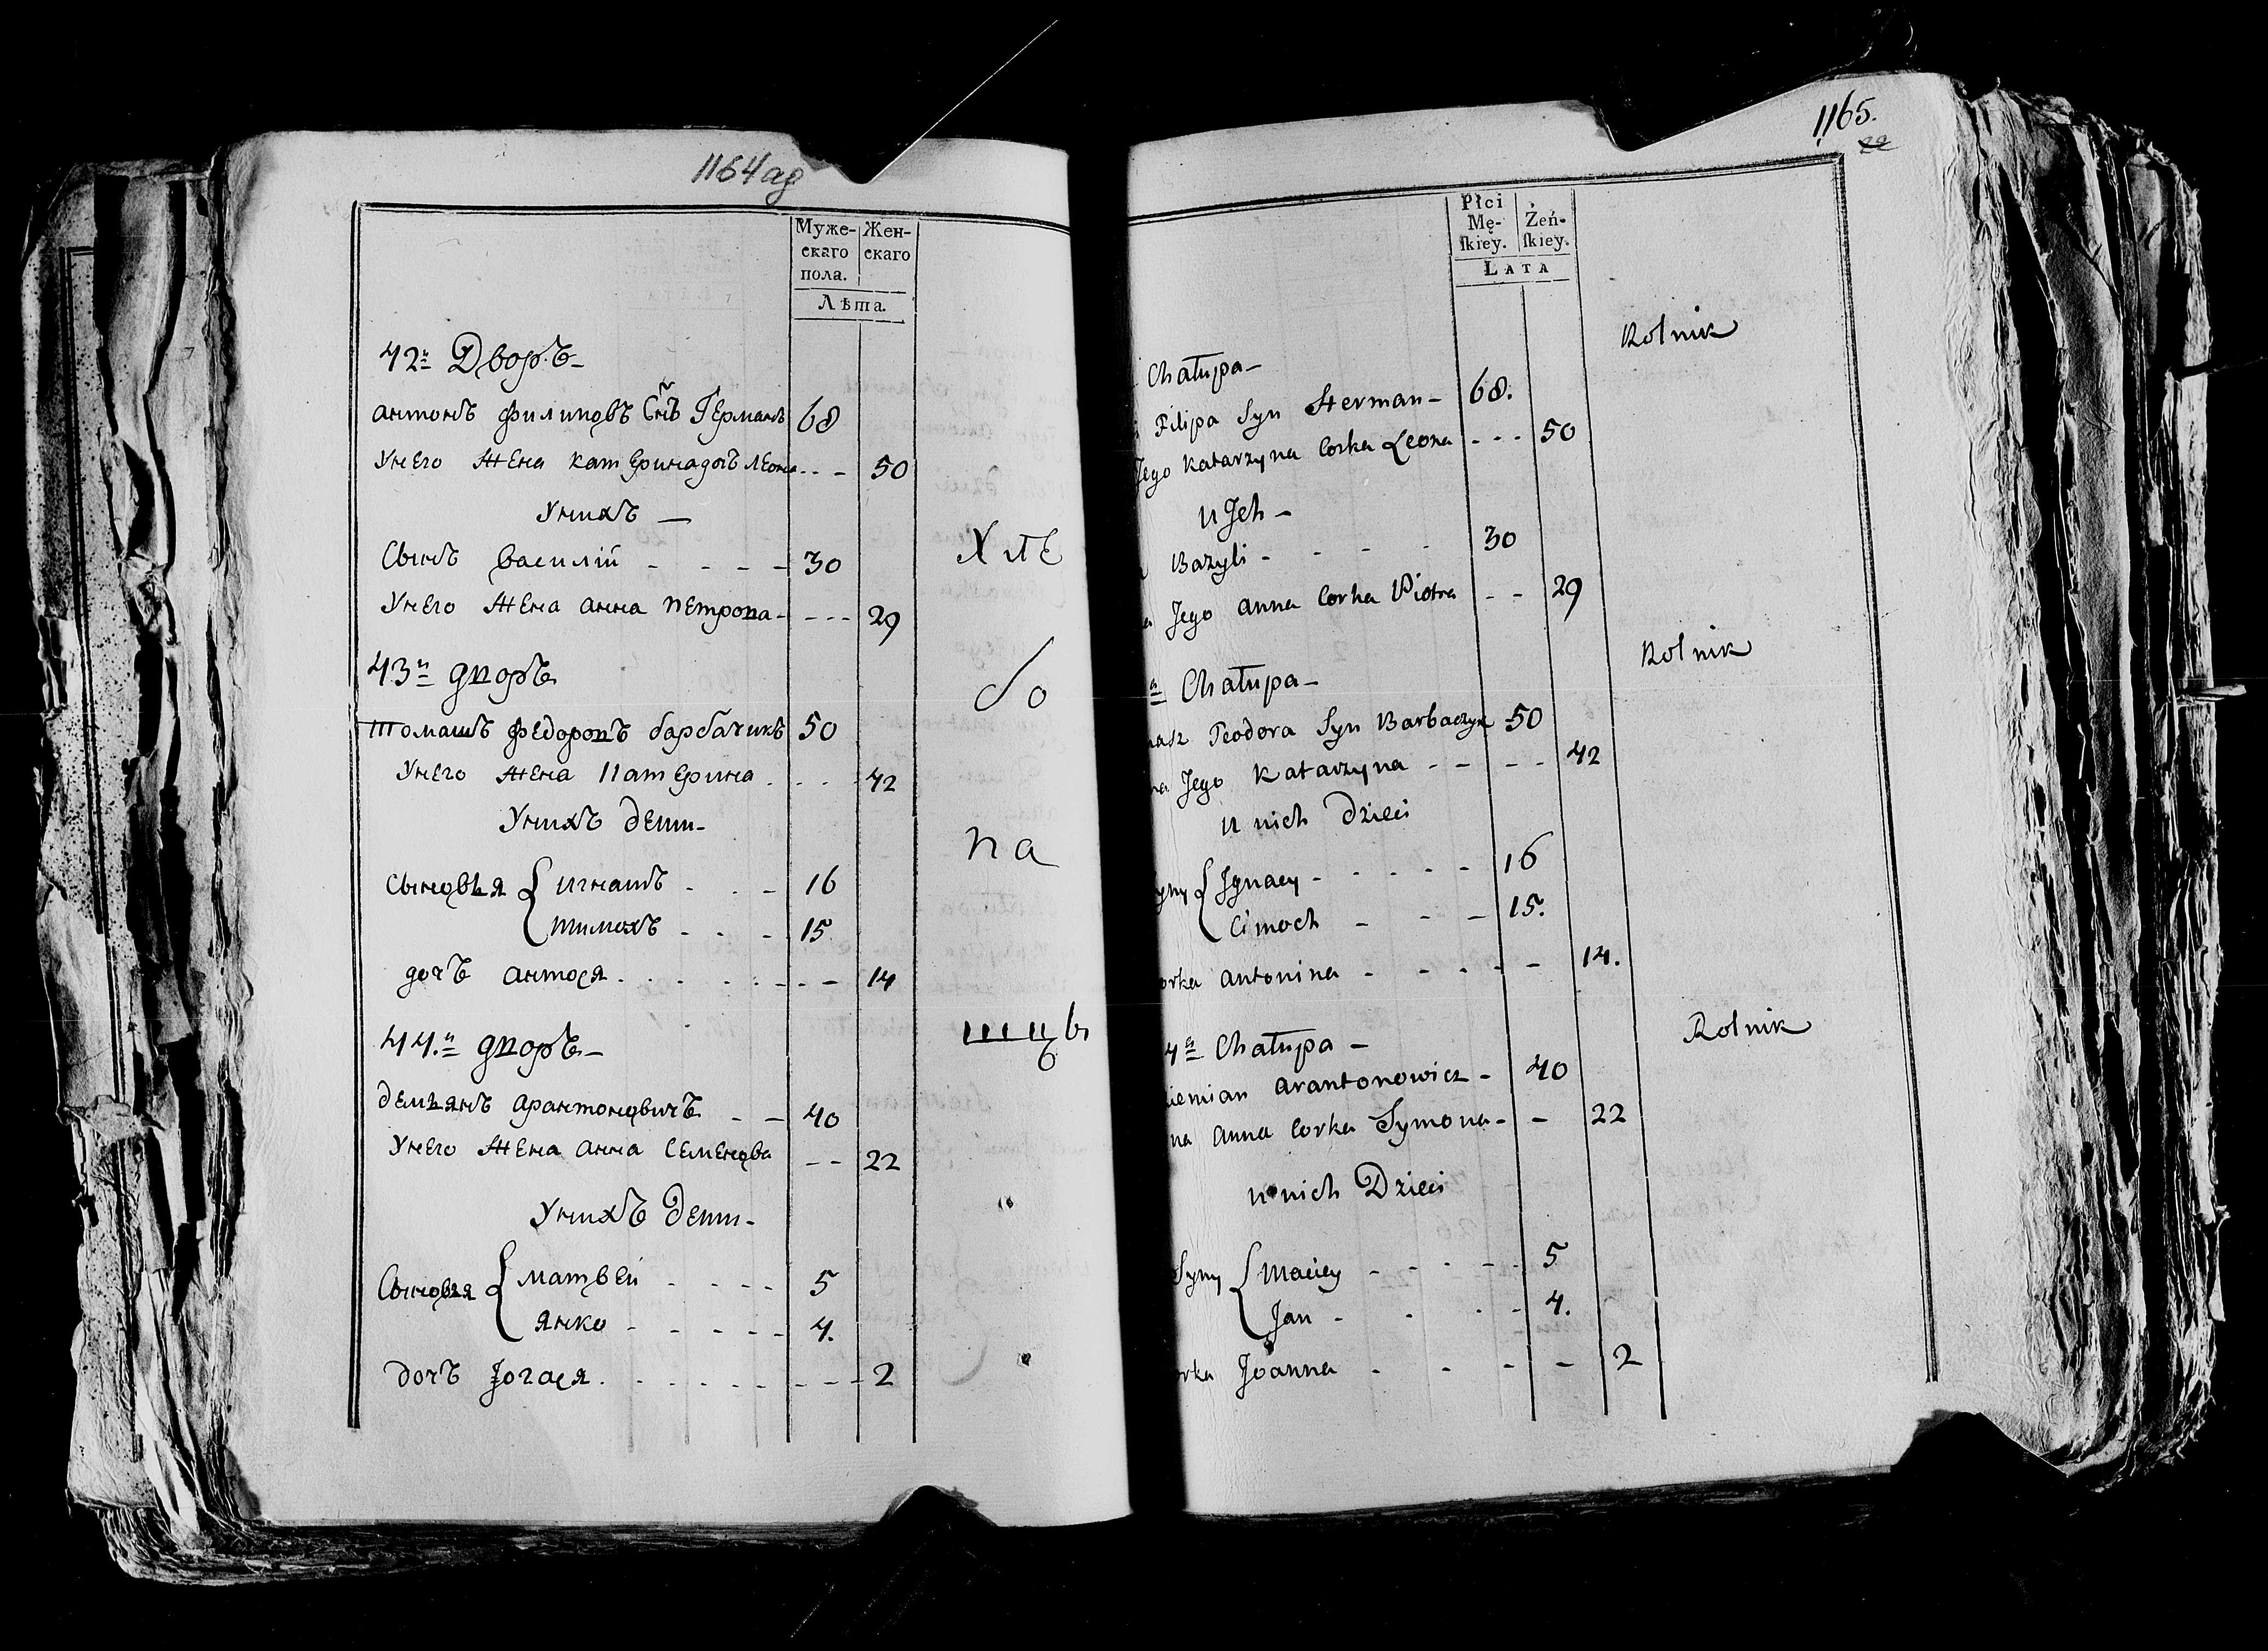 1164 ад
Муже-
скаго
пола.
Жен-
скаго
Лѣта.
42й Дворъ
Антонъ Филиповъ Снъ Германъ 68
У него жена Катерина дочъ Леона - - - 50
У нихъ —
Сынъ Василій - - - - 30
У него жена Анна Петрова - - - - 29
43й дворъ
Томашъ Федоровъ Барбачикъ 50
У него жена Катерина . - - - 42
У нихъ дети -
Сыновья { Игнатъ - - - 16
Тимохъ - - - 15
дочъ Антося . . . - - - - 14
44.й дворъ -
Демьянъ Арантоновичъ - - 40
У него жена Анна Семенова - - 22
У нихъ дети -
Сыновья { Матвей - - - - 5
Янко - - - - - 4.
дочъ Югася . - - - - - - 2
Хлѣ
бо
па
шцы
1165.
Płci
Mę-
ſkiey.
Żeń-
ſkiey.
LATA
Chałupa -
Rolnik
Filipa Syn Herman - 68.
Jego Katarzyna Corka Leona - - - 50
u Jch -
Bazyli - - - - 30
Jego Anna Corka Piotra - - 29
a Chałupa -
Rolnik
asz Teodora Syn Barbaczyk 50
na Jego Katarzyna - - - - 42
u nich Dzieci
yny { Jgnacy - - - - - 16
Cimoch - - - 15.
orka Antonina - - - - - 14.
4a Chałupa -
Rolnik
iemian Arantonowicz - 40
na Anna Corka Symona - - 22
u nich Dzieci
Syny { Maciey - - - - - 5
Jan - - - - 4.
orka Joanna - - - - 2